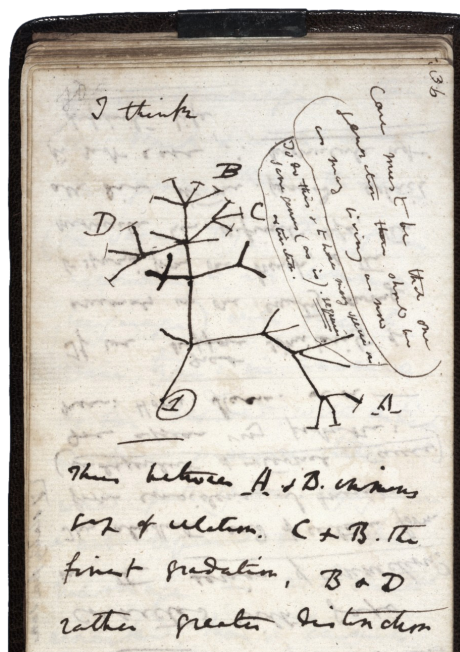 36
I think
Case must be that one
generation then should be
as many living as now
To do this & to have many species in
same genus (as is) requires
extinction.
B
C
D
A
1
Thus between A & B. immens
gap of relation. C & B. The
finest gradation, B & D
rather greater distinction